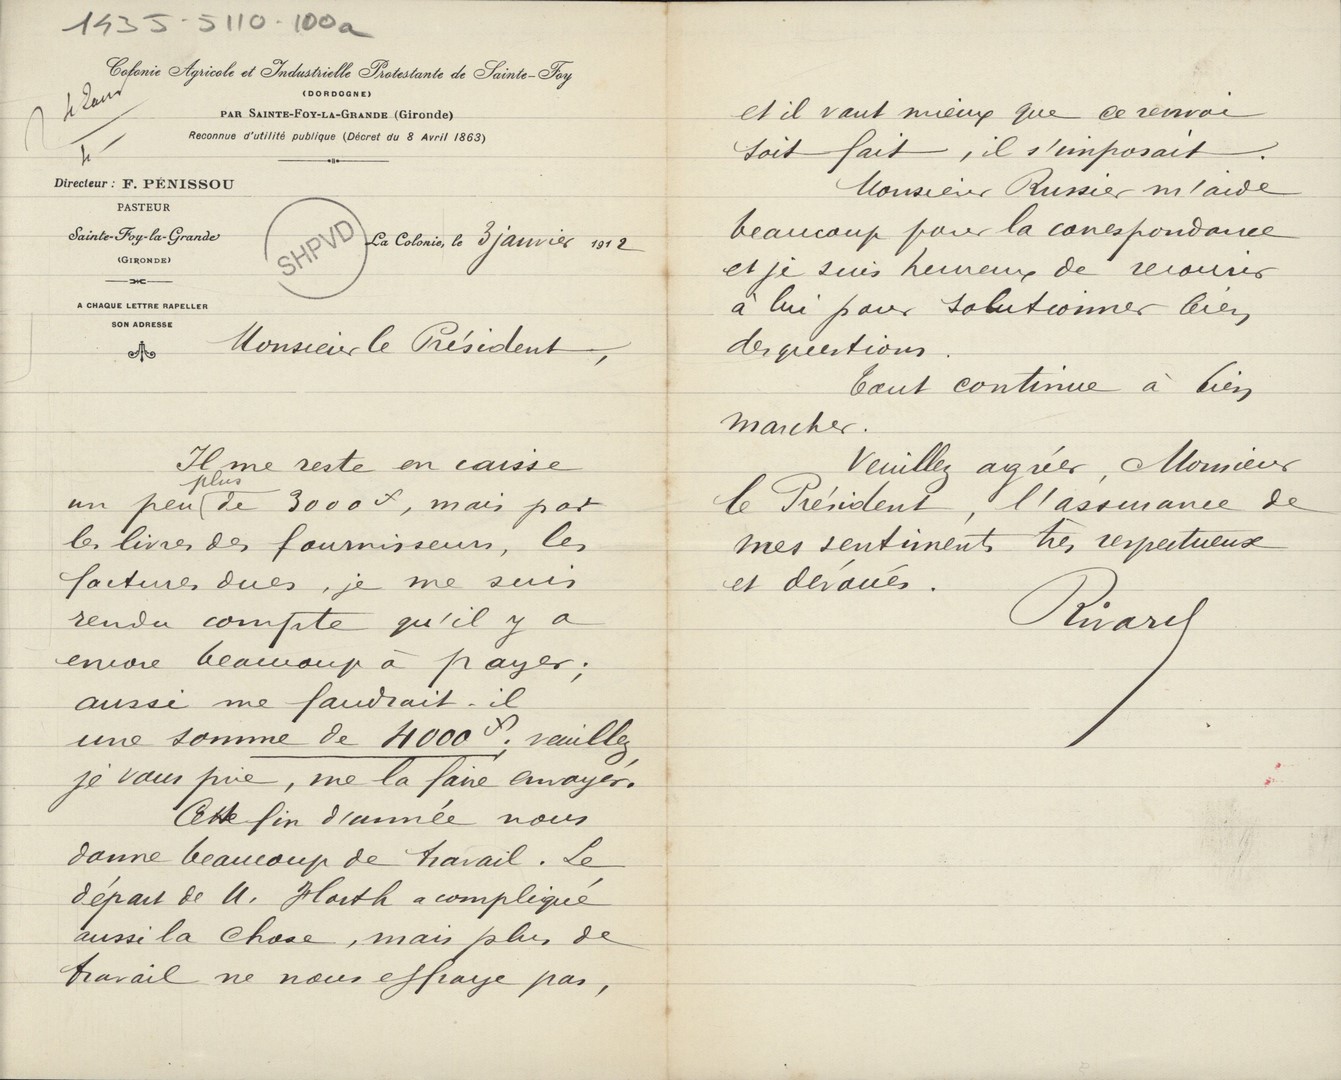 1435-5110-100a
Colonie Agricole et Industrielle Protestante de Sainte-Foy
(DORDOGNE)
PAR SAINTE-FOY-LA-GRANDE (Gironde)
Reconnue d'utilité publique (Décret du 8 Avril 1863)
Directeur : F. PÉNISSOU
PASTEUR
Sainte-Foy-la-Grande
(GIRONDE)
A CHAQUE LETTRE RAPELLER
SON ADRESSE
SHPVD
La Colonie, le 3 janvier 1912
Monsieur le Président,
Il me reste en caisse
plus
un peu de 3000 f, mais par
les livres des fournisseurs, les
factures dues, je me suis
rendu compte qu'il y a
encore beaucoup à payer;
aussi me faudrait-il
une somme de 4000 f; veuillez,
je vous prie, me la faire envoyer.
Cette fin d'année nous
donne beaucoup de travail. Le
départ de M. a compliqué
aussi la chose, mais plus de
travail ne nous effraye pas,
et il vaut mieux que ce renvoi
soit fait, il s'imposait.
Monsieur Russier m'aide
beaucoup pour la correspondance
et je suis heureux de recourir
à lui pour solutionner bien
des questions.
Tout continue à bien
marcher.
Veuillez agréer, Monsieur
le Président, l'assurance de
mes sentiments très respectueux
et dévoués.
Rivarel